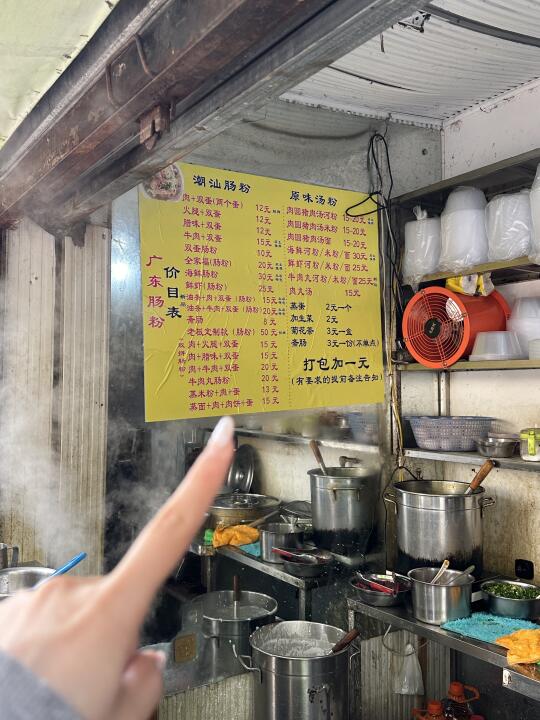 潮汕肠粉
肉+双蛋(两个蛋) 12元
火腿+双蛋 12元
腊味+双蛋 12元
牛肉+双蛋 15元
双蛋肠粉 10元
全家福(肠粉) 20元
海鲜肠粉 30元
鲜虾(肠粉) 25元
油条+肉+双蛋(肠粉) 15元
油条+牛肉+双蛋(肠粉) 20元
斋肠 8元
老板定制款(肠粉) 50元
肉+火腿+双蛋 15元
肉+腊味+双蛋 15元
牛肉+肉+双蛋 20元
牛肉丸肠粉 20元
蒸米粉+肉+蛋 13元
蒸面+肉+肉饼+蛋 15元
广东肠粉
价目表
原味汤粉
肉圆猪肉汤河粉 15-20元
肉圆猪肉汤米粉 15-20元
肉圆猪肉汤面 15-20元
海鲜河粉/米粉/面 30元
鲜虾河粉/米粉/面 25元
牛肉丸河粉/米粉/面 25元
肉丸汤 15元
蒸蛋 2元一个
加生菜 2元
菊花茶 3元一盒
斋肠 3元一份(不单点)
打包加一元
(有要求的提前备注告知)